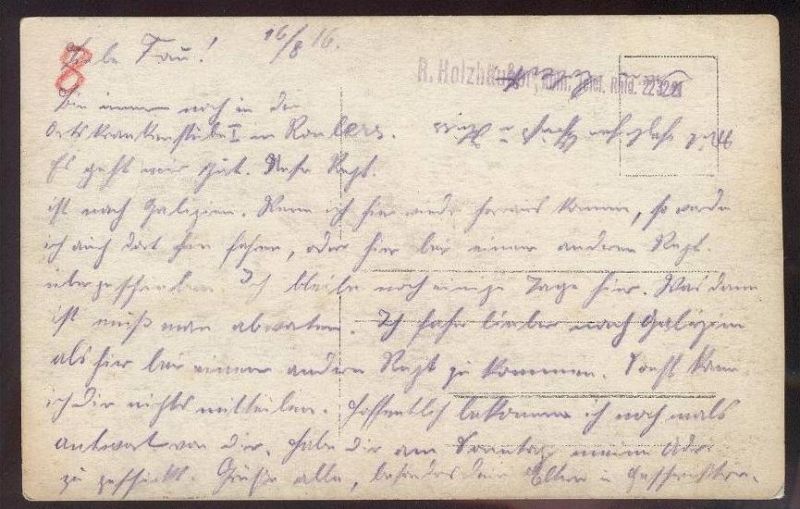 16/8 16.
8
Liebe Frau!
R. Holzhäußer,
Bin immer noch in der
Ortskrankenstube I in
Es geht mir gut. Unser Regt.
ist nach Galizien. Wenn ich hier wieder heraus komme, so werde
ich auch dort hin fahren, oder hier bei einem anderen Regt.
Ich bleibe noch einige Tage hier. Was dann
ist muß man abwarten. Ich fahre lieber nach Galizien
als hier bei einem andern Regt zu kommen. Sonst kann
ich dir nichts mitteilen. Hoffentlich bekomme ich nochmals
Antwort von dir. Habe dir am Sonntag meine Adr.
zu geschickt. Grüße alle, besonders dein Eltern u
Mit herzlichen Gruß u Kuss